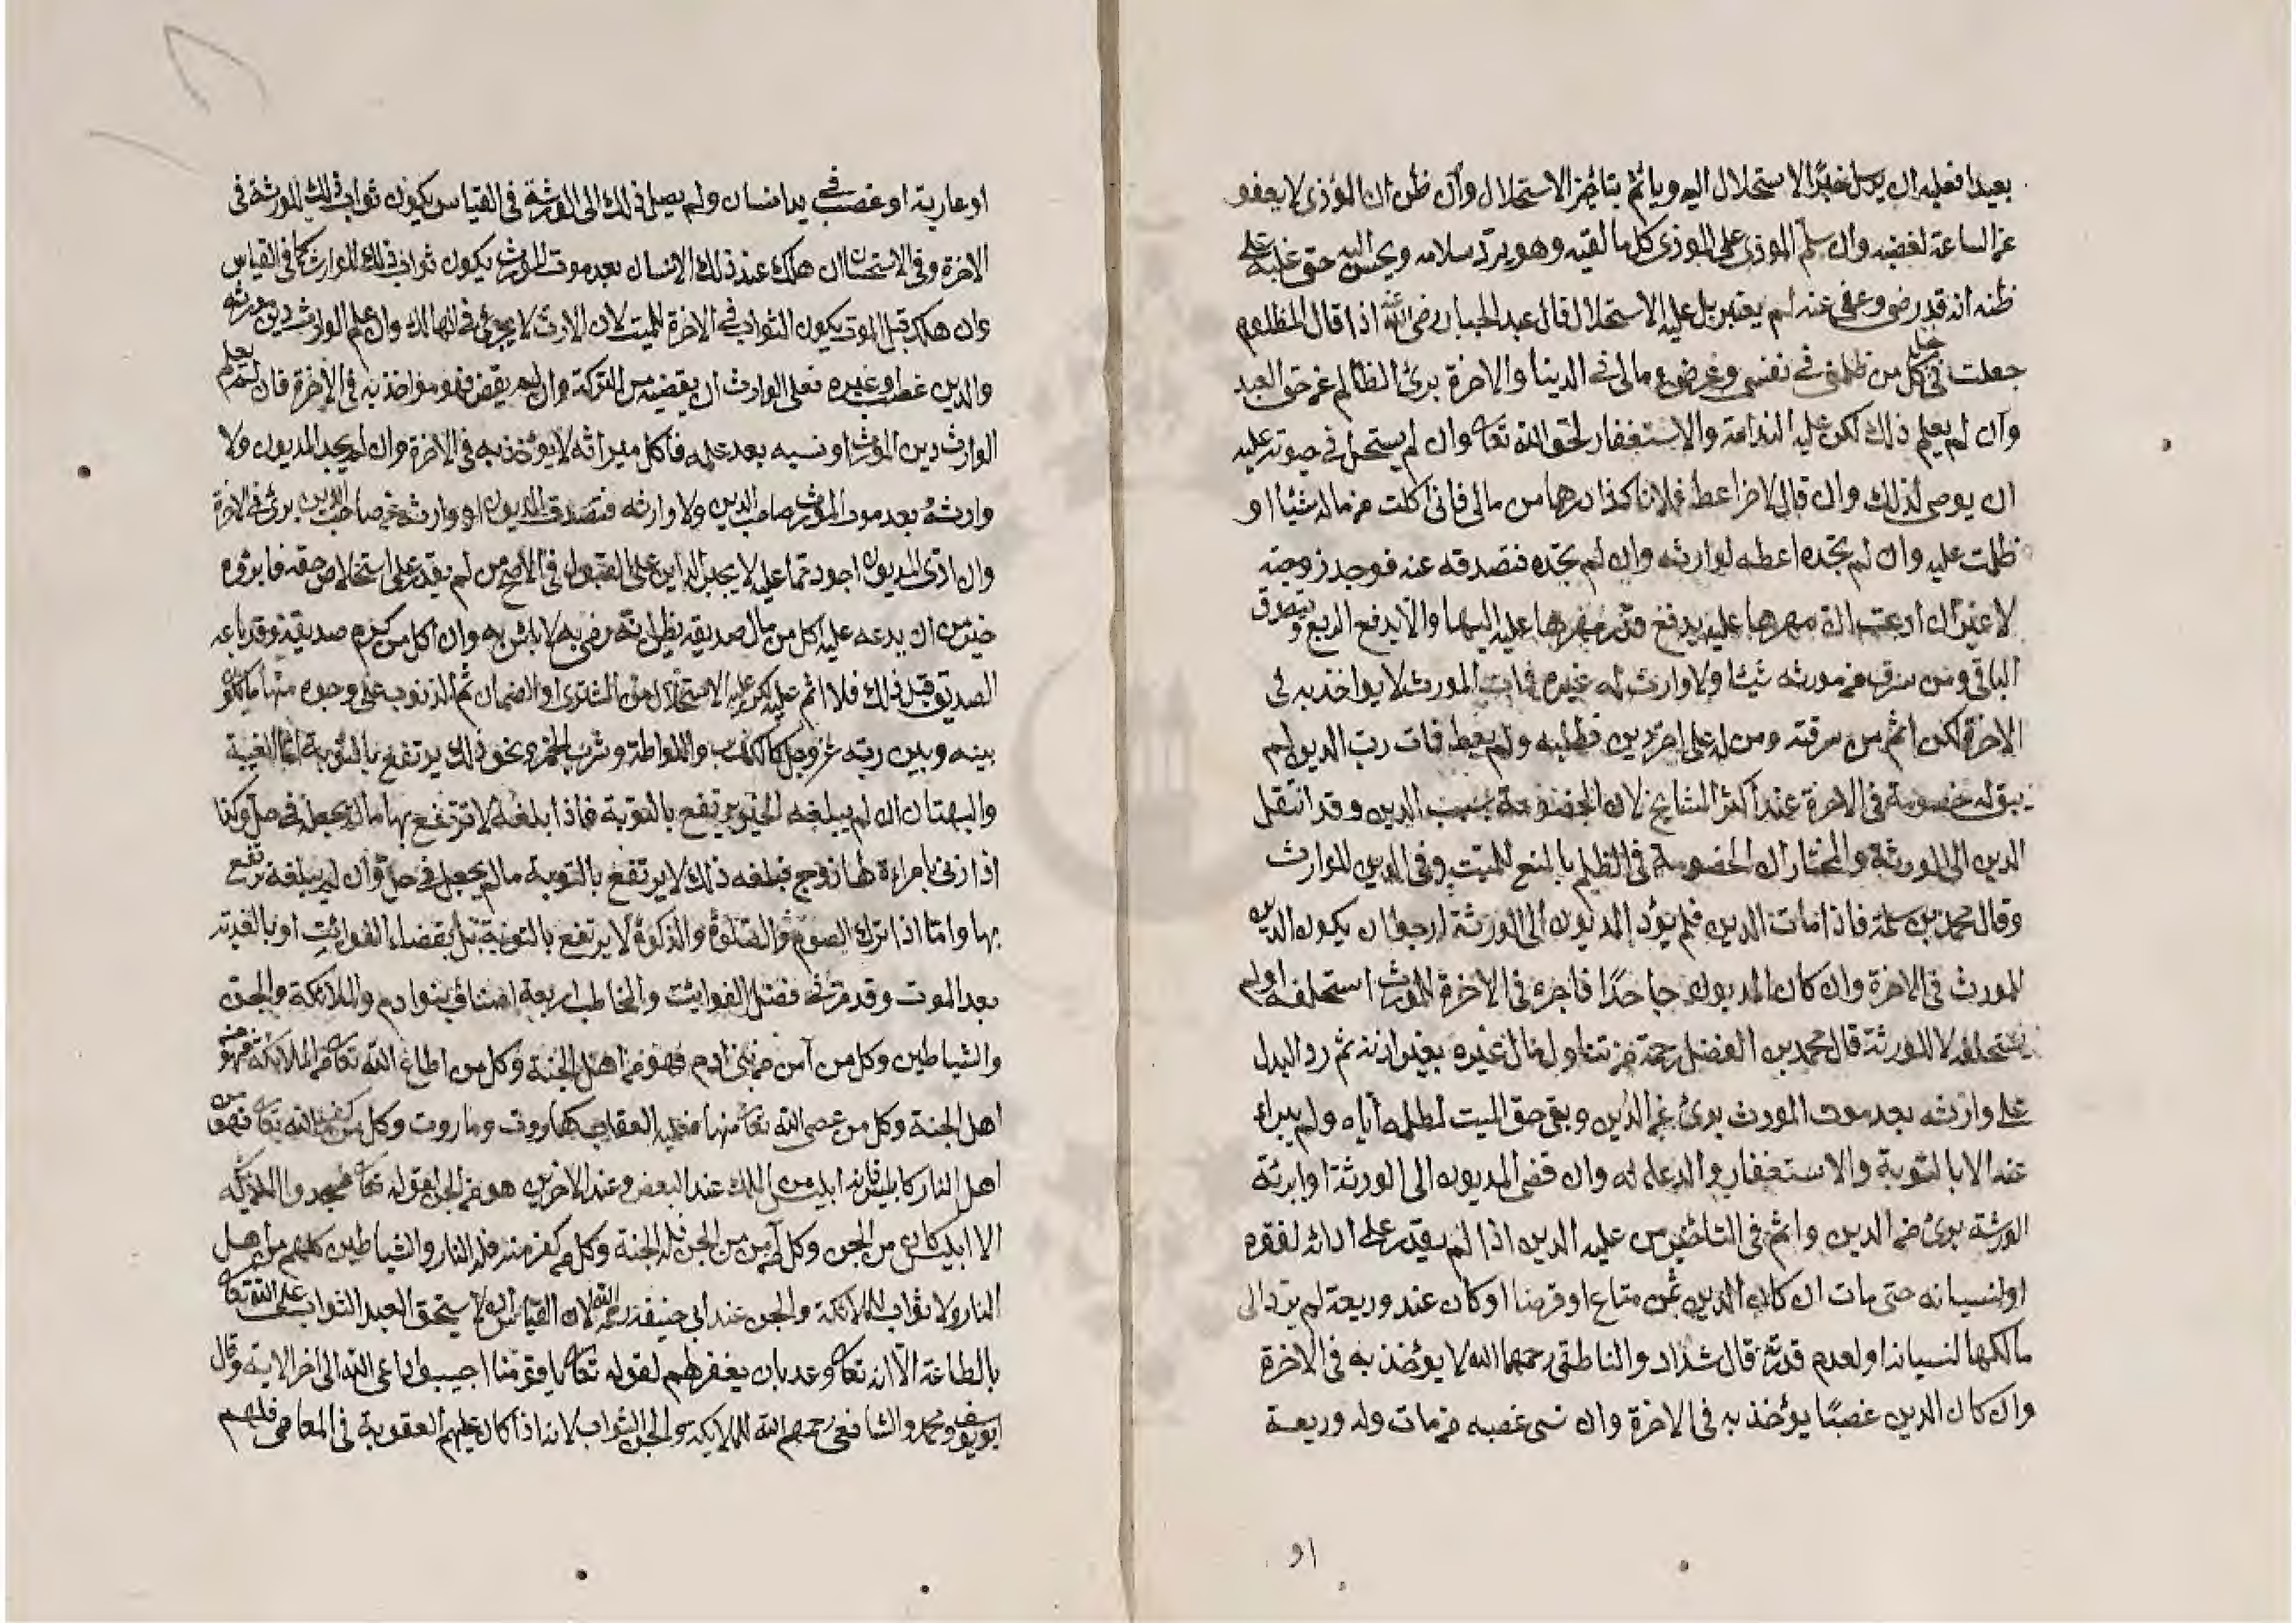 بعيدا فعليه ان يرسل خبر الاستحلال اليه ويأثم بتأخير الاستحلال وان ظن ان المؤذى لا يعفو
عن الساعة لغضبه وان سلم الموذى على الموذى كل ما لقيه وهو يرد سلامه ويحسن اليه حتى غلبه على
ظنه انه قد رضى وعفى عنه لم يعتبر بل عليه الاستحلال قال عبد الجبار رضى الله عنه اذا قال المظلوم
جعلت فى حل كل من ظلمنى فى نفسى وعرضى ومالى فى الدنيا والاخرة برئ الظالم عن حق العبد
وان لم يعلم ذلك لكن عليه الندامة والاستغفار لحق الله تعا وان لم يستحل فى حيوته عليه
ان يوصى لذلك وان قال لاخر اعط فلانا كذا درهما من مالى فانى اكلت من ماله شيئا او
ظلمت عليه وان لم تجده اعطه لوارثه وان لم تجده فتصدقه عنه فوجد زوجته
لا غير ان ادعت ان مهرها عليه يدفع قدر مهرها عليه اليها والا يدفع الربع ويتصدق
الباقى ومن سرق من مورثه شيئا ولا وارث له غيره فمات المورث لا يواخذ به فى
الاخرة لكن اثم من سرقته ومن له على اخر دين فطلبه ولم يعط فمات رب الدين لم
يبق له خصومة فى الاخرة عند اكثر المشايخ لان الخصومة بسبب الدين وقد انتقل
الدين الى الورثة والمختار ان الخصومة فى الظلم بالمنع للميت وفى الدين للوارث
وقال محمد بن سلمة فاذا مات الدين فلم يؤد المديون الى الورثة ارجوا ان يكون الدين
للمورث فى الاخرة وان كان المديون جاحدا فاجره فى الاخرة للمورث استحلفه او لم
يستحلفه لا للورثة قال محمد بن الفضل رحمة من تناول مال غيره بغير اذنه ثم رد البدل
على وارثه بعد موت المورث برئ عن الدين وبقى حق الميت لمظلمه اياه ولم يبراء
عنه الا بالتوبة والاستغفار والدعاء له وان قضى المديون الى الورثة او ابرئه
الورثة برئ من الدين واثم فى التأخير من عليه الدين اذا لم يقدر على ادائه لفقره
او لنسيانه حتى مات ان كان الدين ثمن متاع او قرضا او كان عنده وديعة لم يرد الى
مالكها لنسيانه او لعدم قدرته قال شداد والناطقى رحمهما الله لا يؤخذ به فى الاخرة
وان كان الدين غصبا يؤخذ به فى الاخرة وان نسى غصبه من مات وله وديعة
او
او عارية او غصب فى يد انسان ولم يصل ذلك الى الورثة فى القياس يكون ثواب ذلك للورثة فى
الاخرة وفى الاستحسان ان هلك عند ذلك الانسان بعد موت المورث يكون ثواب ذلك للوارث كما فى القياس
وان هلك قبل الموت يكون الثواب فى الاخرة للميت لان الارث لا يجرى فى الهالك وان علم الوارث دين مورثه
والدين غصب وغيره فعلى الوارث ان يقضيه من التركة وان لم يقض فهو مؤاخذ به فى الاخرة فان لم يعلم
الوارث دين المورث او نسيه بعد علمه فاكل ميراثه لا يؤخذ به فى الاخرة وان لم يجد المديون ولا
وارثه بعد موت المورث صاحب الدين ولا وارثه فتصدق المديون او وارثه عن صاحب الدين برئ فى الاخرة
وان ادى المديون اجود مما عليه لا يجبر الداين على القبول فى الاصح من لم يقدر على استخلاص حقه فابرؤه
خير من ان يدعه عليه اكل من مال صديقه يظن انه رضى به لا بأس به وان اكل من كرم صديقه وقد باعه
الصديق قبل ذلك فلا اثم عليه لكن عليه الاستحلال من المشترى او الضمان ثم الذنوب على وجوه منها ما يكون
بينه وبين ربه عز وجل كالكذب واللواطة وشرب الخمر ونحو ذلك يرتفع بالتوبة اما الغيبة
والبهتان ان لم يبلغه الخبر يرتفع بالتوبة فاذا بلغه لا ترتفع بها مالم يجعله فى حل وكذا
اذا زنى بامراءة لها زوج فبلغه ذلك لا يرتفع بالتوبة مالم يجعله فى حل وان لم يبلغه ترتفع
بها واما اذا ترك الصوم والصلوة والزكوة لا يرتفع بالتوبة بل بقضاء الفوائت او بالفدية
بعد الموت وقد مر فى فصل الفوائت والمخاطب اربعة اصناف بنوا ادم والملائكة والجن
والشياطين وكل من آمن من بنى ادم فهو من اهل الجنة وكل من اطاع الله تعا من الملائكة فهو من
اهل الجنة وكل من عصى الله تعا منها فعليه العقاب كهاروت وماروت وكل من كفر بالله تعا فهو من
اهل النار كابليس فانه ابليس من الملك عند البعض وعند الاخرين هو من الجن لقوله تعا فسجدوا الملائكة
الا ابليس كان من الجن وكل من آمن من الجن فله الجنة وكل من كفر منه فله النار والشياطين كلهم من اهل
النار ولا ثواب للملائكة والجن عند ابى حنيفة رحمه الله لان القياس ان لا يستحق العبد الثواب على الله تعا
بالطاعة الا انه تعا وعد بان يغفر لهم لقوله تعا يا قومنا اجيبوا داعى الله الى اخر الاية وقال
ابو يوسف ومحمد والشافعى رحمهم الله للملائكة والجن الثواب لانه اذا كان عليهم العقوبة فى المعاصى فلهم